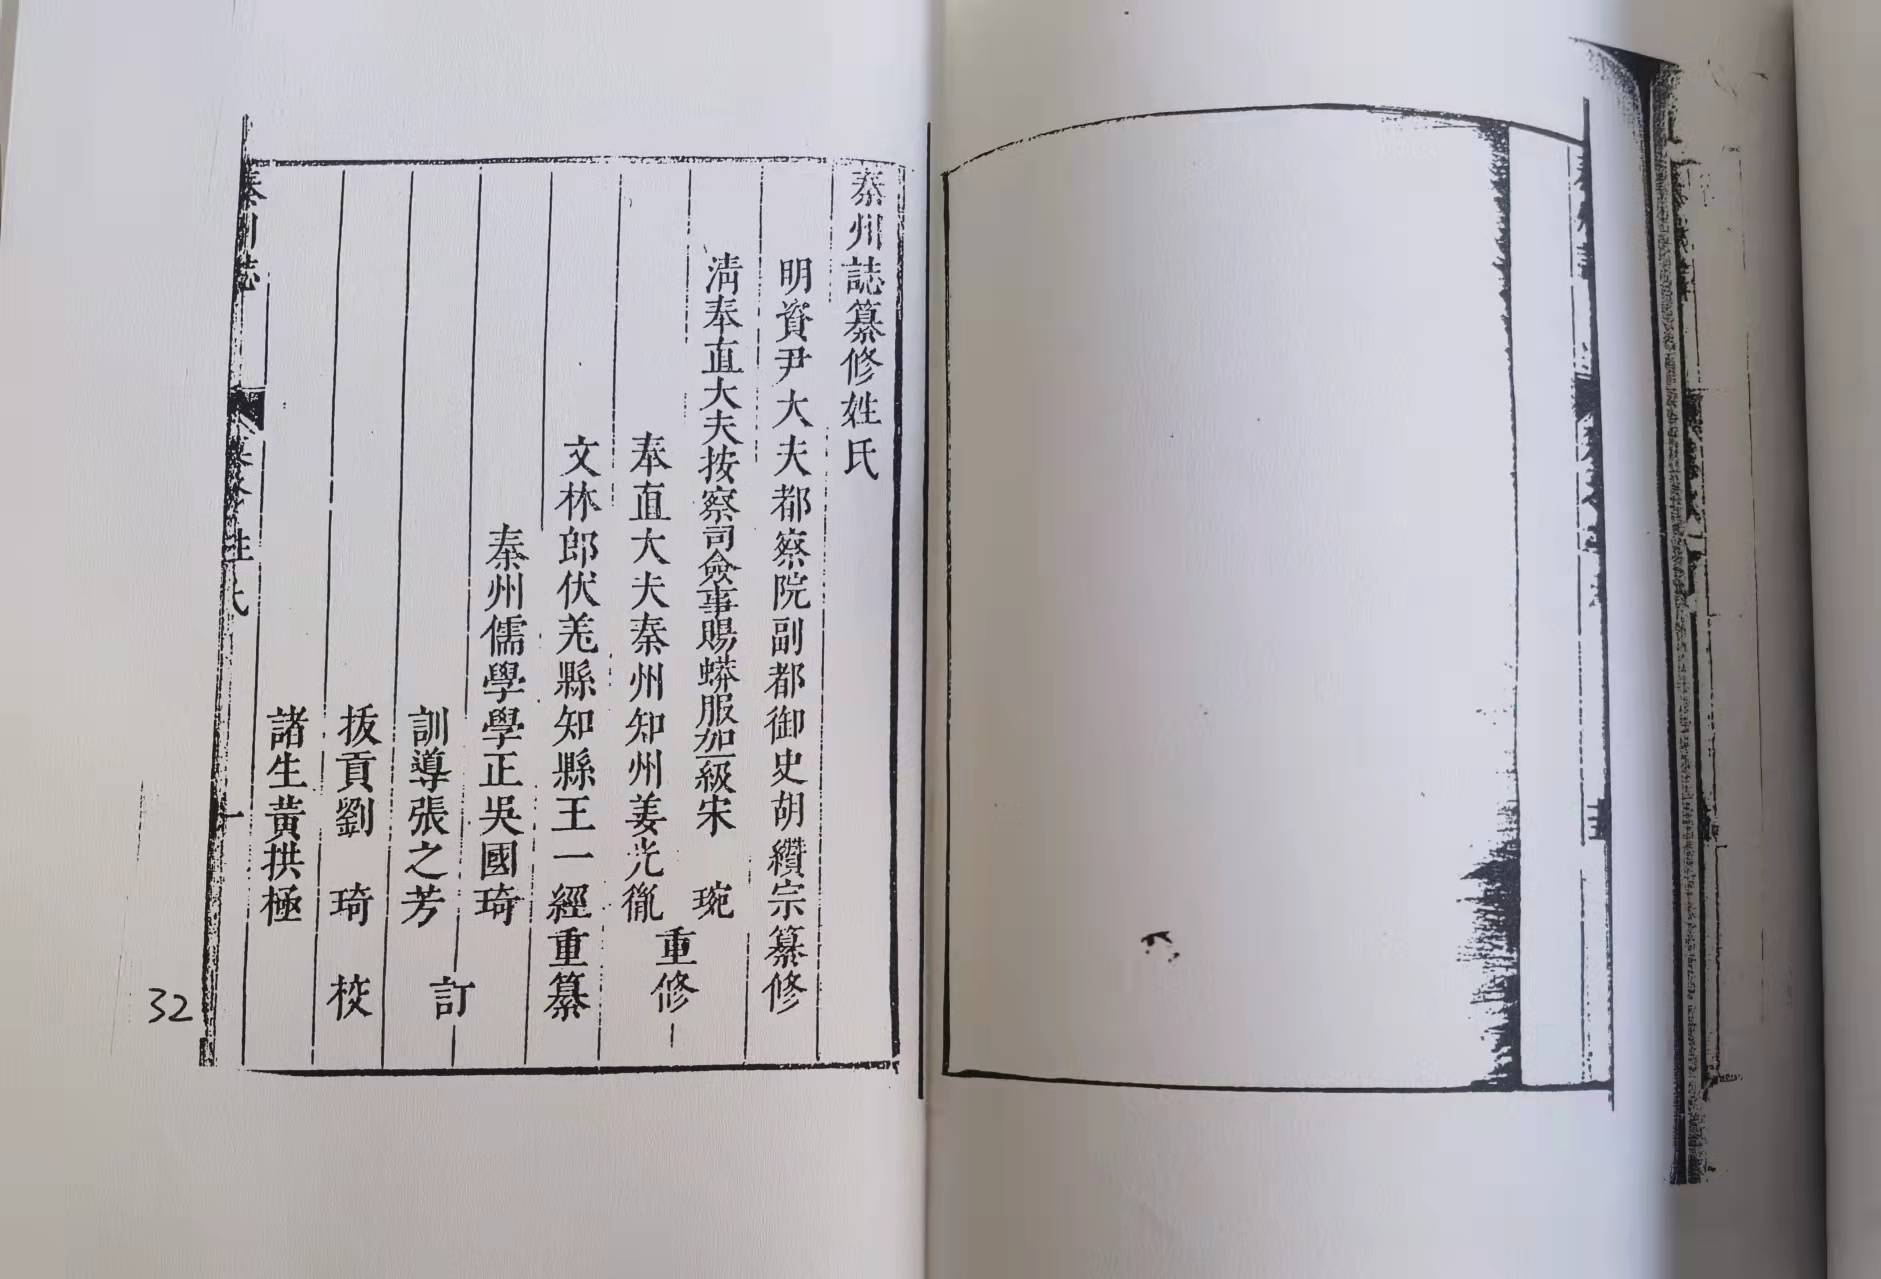 秦州誌纂修姓氏
明資尹大夫都察院副都御史胡纘宗纂修
清奉直大夫按察司僉事賜蟒服加一級宋琬
奉直大夫秦州知州姜光胤
重修
文林郎伏羌縣知縣王一經重纂
秦州儒學學正吳國琦
訓導張之芳
訂
拔貢劉琦
校
諸生黃拱極
秦州誌
姓氏
一
32